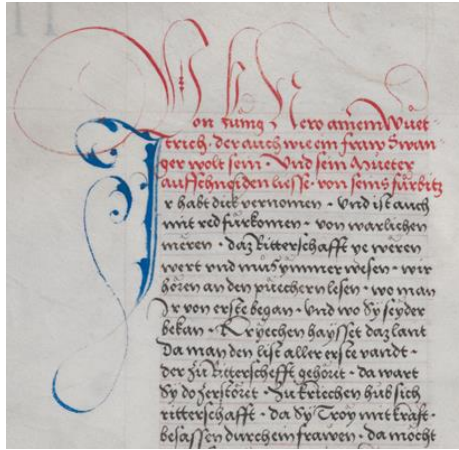 Von künig Nero ainem Wüet
trich · der auch wie ein fraw Swan
ger wolt sein · Und sein Mueter
aufschneiden liesse · von seins fürbitz
Ir habt dick vernomen · Und ist auch
mit red fürkomen · von warlichen
mëren · daz Ritterschafft ye wëren
wert vnd muͦs ymmer wesen · wir
hören an den püechern lesen · wo man
Ir von erste began · Vnd wo Sy seyder
bekan · Kryechen haysset daz lant
Da man den list aller erste vandt ·
der zu Ritterschefft gehöret · da wart
Sy do zerstöret · Zu kriechen hub sich
ritterschafft · da Sy Troy mit kraft ·
besassen durch ein frawen · da möcht